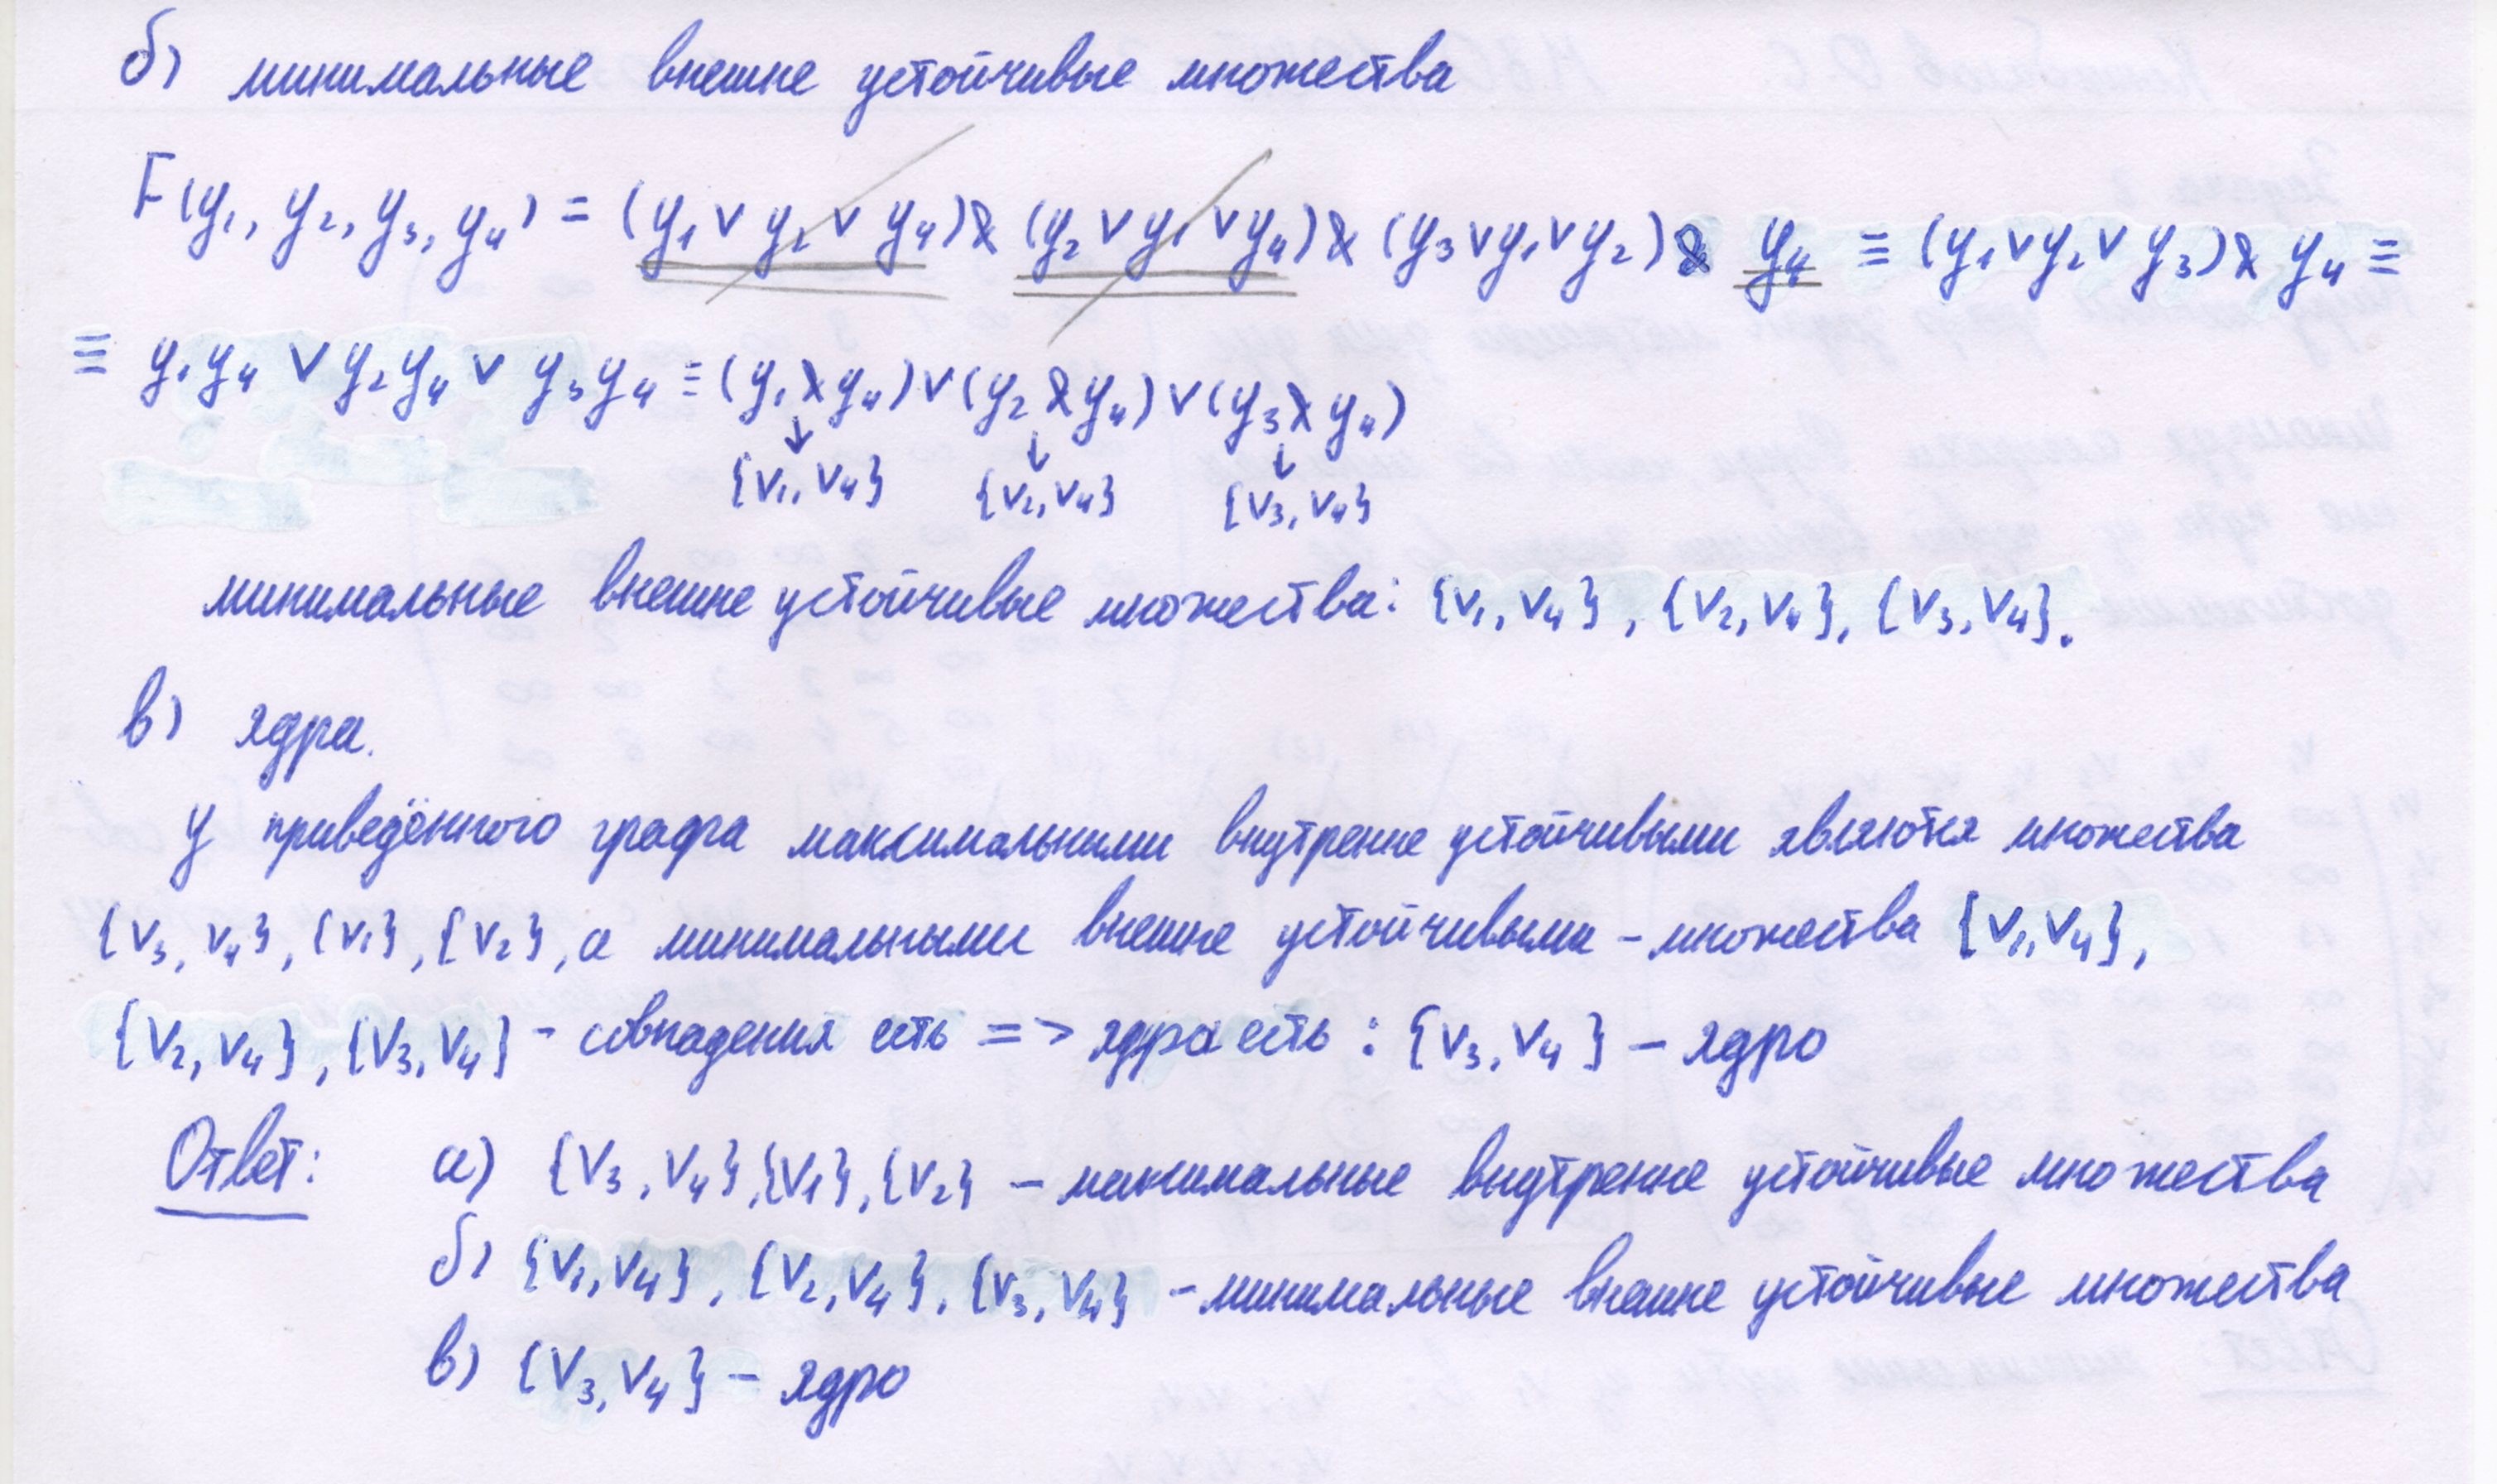 б) минимальные внешне устойчивые множества
F(y₁, y₂, y₃, y₄) = (y₁ ∨ y₂ ∨ y₄) & (y₂ ∨ y₁ ∨ y₄) & (y₃ ∨ y₁ ∨ y₂) & y₄ ≡ (y₁ ∨ y₂ ∨ y₃) & y₄ ≡
≡ y₁y₄ ∨ y₂y₄ ∨ y₃y₄ ≡ (y₁ & y₄) ∨ (y₂ & y₄) ∨ (y₃ & y₄)
↓ ↓ ↓
{v₁, v₄} {v₂, v₄} {v₃, v₄}
минимальные внешне устойчивые множества: {v₁, v₄}, {v₂, v₄}, {v₃, v₄}.
в) ядра.
У приведённого графа максимальными внутренне устойчивыми являются множества
{v₃, v₄}, {v₁}, {v₂}, а минимальными внешне устойчивыми – множества {v₁, v₄},
{v₂, v₄}, {v₃, v₄} – совпадения есть => ядра есть : {v₃, v₄} – ядро
Ответ: а) {v₃, v₄}, {v₁}, {v₂} – максимальные внутренне устойчивые множества
б) {v₁, v₄}, {v₂, v₄}, {v₃, v₄} – минимальные внешне устойчивые множества
в) {v₃, v₄} – ядро